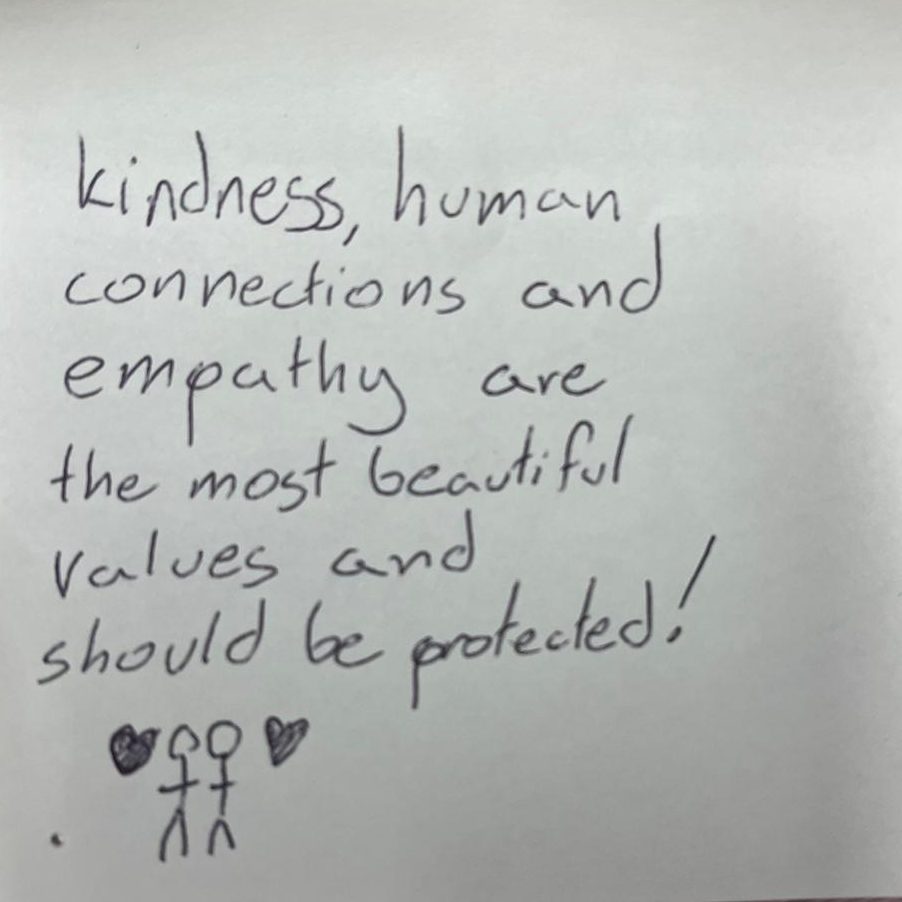 kindness, human
connections and
empathy are
the most beautiful
values and
should be protected!